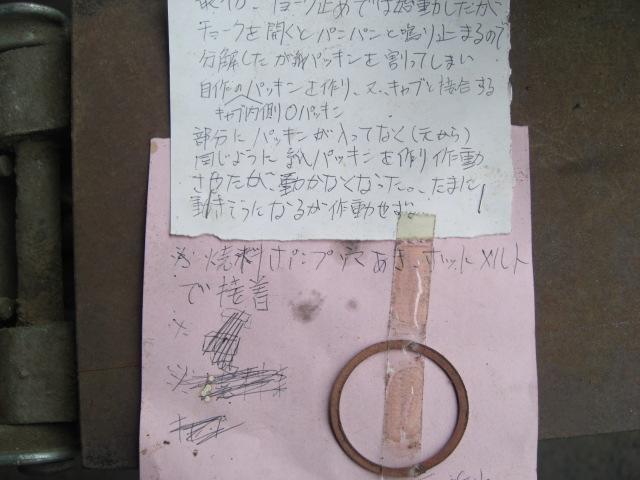 最初、チョーク止めでは始動したが
チョークを開くとパンパンと鳴り止まるので
分解したが紙パッキンを割ってしまい
自作のパッキンを作り、又、キャブと接合する
キャブ内側Oパッキン
部分にパッキンが入ってなく(元から)
同じように紙パッキンを作り作動
させたが、動かなくなった。たまに
動きそうになるが作動せず。
※燃料ポンプ穴あき、ホットメルト
で接着